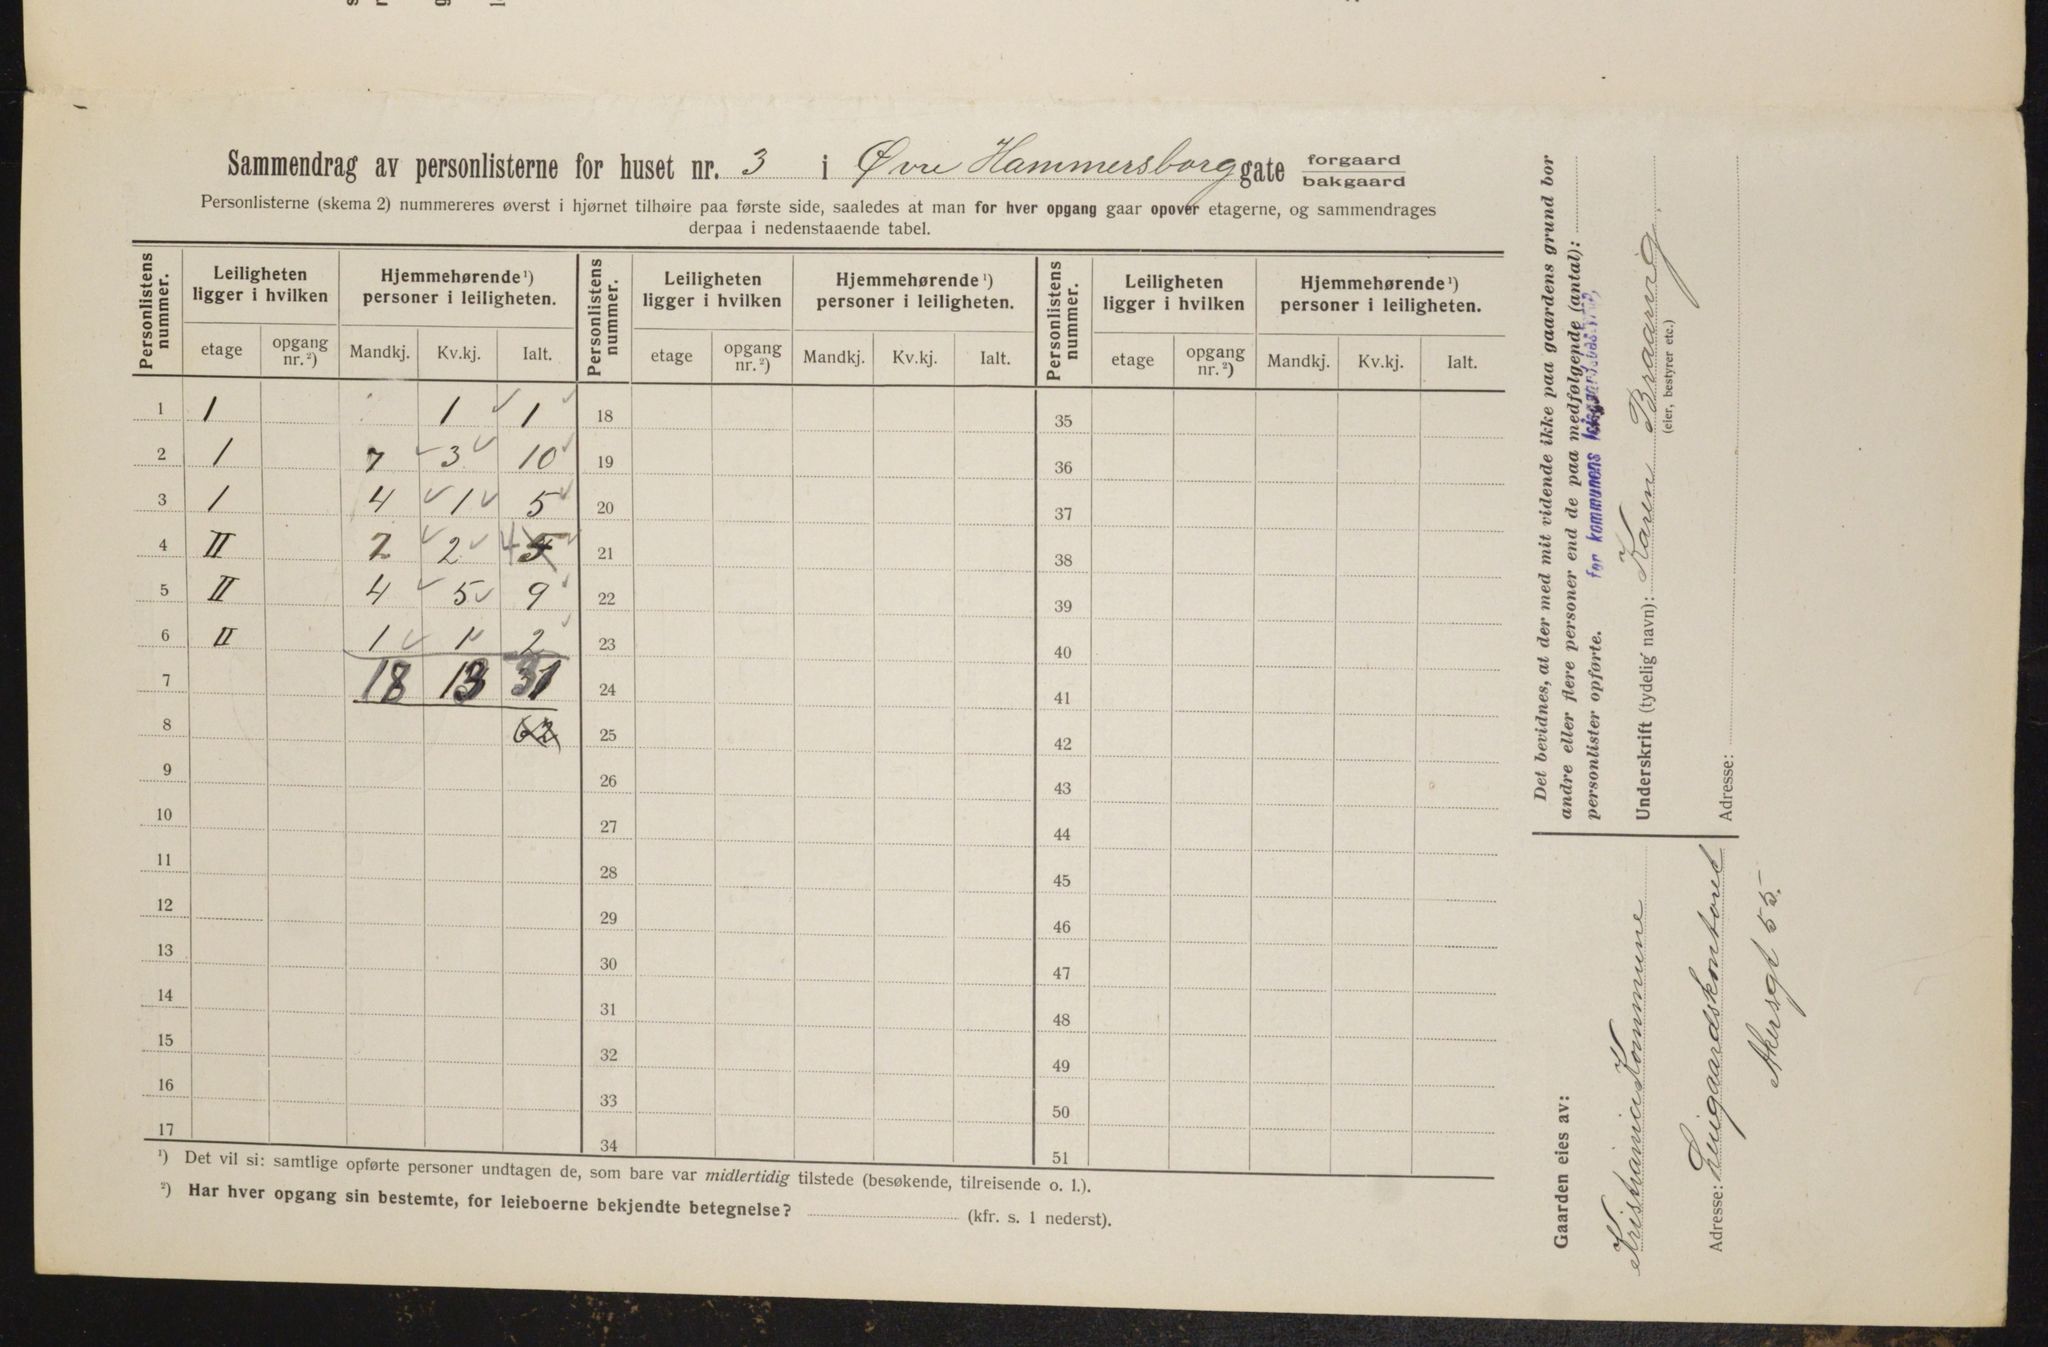 Sammendrag av personlisterne for huset nr. 3 i Øvre Hammersborg gate forgaard bakgaard
Personlisterne (skema 2) nummereres øverst i hjørnet tilhøire paa første side, saaledes at man for hver opgang gaar opover etagerne, og sammendrages
derpaa i nedenstaaende tabel.
Personlistens nummer. Leiligheten ligger i hvilken Hjemmehørende ¹) personer i leiligheten. Personlistens nummer. Leiligheten ligger i hvilken Hjemmehørende ¹) personer i leiligheten. Personlistens nummer. Leiligheten ligger i hvilken Hjemmehørende ¹) personer i leiligheten.
etage opgang nr. ²) Mandkj. Kv.kj. Ialt. etage opgang nr. ²) Mandkj. Kv.kj. Ialt. etage opgang nr. ²) Mandkj. Kv.kj. Ialt.
1 I 1 1 18 35
2 I 7 3 10 19 36
3 I 4 1 5 20 37
4 II 2 2 4 21 38
5 II 4 5 9 22 39
6 II 1 1 2 23 40
7 18 13 31 24 41
8 62 25 42
9 26 43
10 27 44
11 28 45
12 29 46
13 30 47
14 31 48
15 32 49
16 33 50
17 34 51
¹) Det vil si: samtlige opførte personer undtagen de, som bare var midlertidig tilstede (besøkende, tilreisende o. l.).
²) Har hver opgang sin bestemte, for leieboerne bekjendte betegnelse? (kfr. s. 1 nederst).
Det bevidnes, at der med mit vidende ikke paa gaardens grund bor
andre eller flere personer end de paa medfølgende (antal):
personlister opførte.
for kommunens
Underskrift (tydelig navn): Karen Braarvig
(eier, bestyrer etc.)
Adresse:
Gaarden eies av:
Kristiania Kommune
Adresse: Leiegaardskontoret
Akersgt 55.